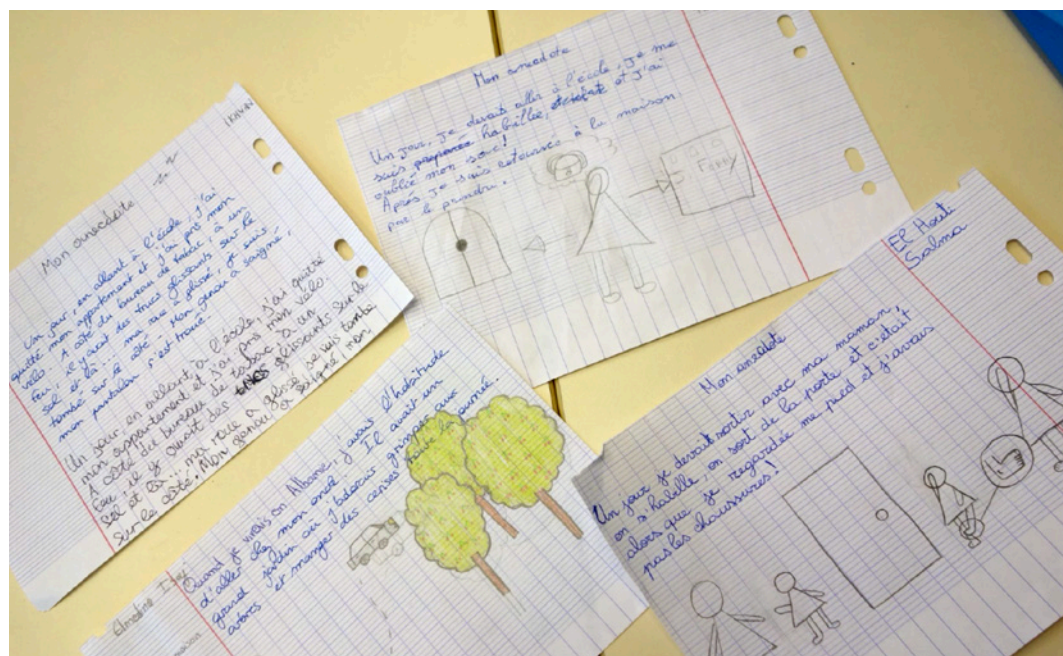 Mon anecdote
Un jour, en allant à l'école, j'ai
quitté mon appartement et j'ai pris mon
vélo. A côté du bureau de tabac, à un
feu, il y avait des trucs glissants sur le
sol et là... ma roue a glissé, je suis
tombé sur le côté. Mon genou a saigné,
mon pantalon s'est troué.
Un jour, en allant, à l'école, j'ai quitté
mon appartement et j'ai pris mon vélo.
A côté du bureau de tabac, à un
feu, il y avait des glissants sur le
sol et là... ma roue a glissé, je suis tombé
sur le côté. Mon genou a saigné, mon
Mon anecdote
Un jour, je devais aller à l'école, je me
suis habillée, et j'ai
oublié mon sac!
Après je suis retournée à la maison,
pour le prendre.
J. Ferry
Quand je vivais en Albanie, j'avais l'habitude
d'aller chez mon oncle. Il avait un
grand jardin où j'adorais grimper aux
arbres et manger des cerises toute la journée.
El Houti
Salma
Mon anecdote
Un jour je devait sortir avec ma maman,
on s'habille, on sort de la porte et c'était
alors que je regardée me pied et j'avais
pas les chaussures!